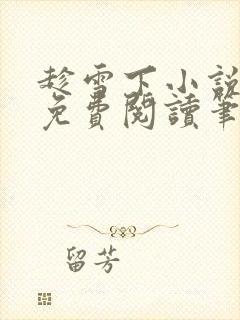 趁雪下小說
免費閱讀筆
留芳